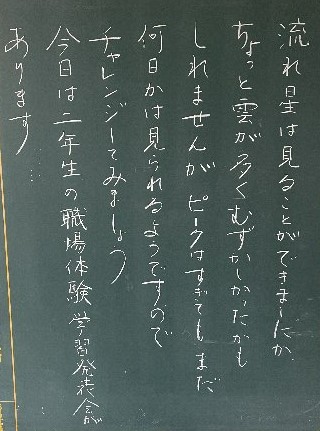 流れ星は見ることができましたか
ちょっと雲が多くむずかしかったかも
しれませんが ピークはすぎても まだ
何日かは見られるようですので
チャレンジしてみましょう
今日は二年生の職場体験学習発表会が
あります